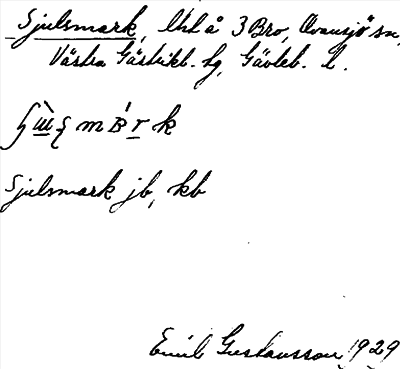 Sjulsmark, lhl å 3 Bro, Ovansjö sn,
Västra Gästrikl. hg, Gävleb. l.
Sjulsmark jb, kb
Emil Gustavsson 1929